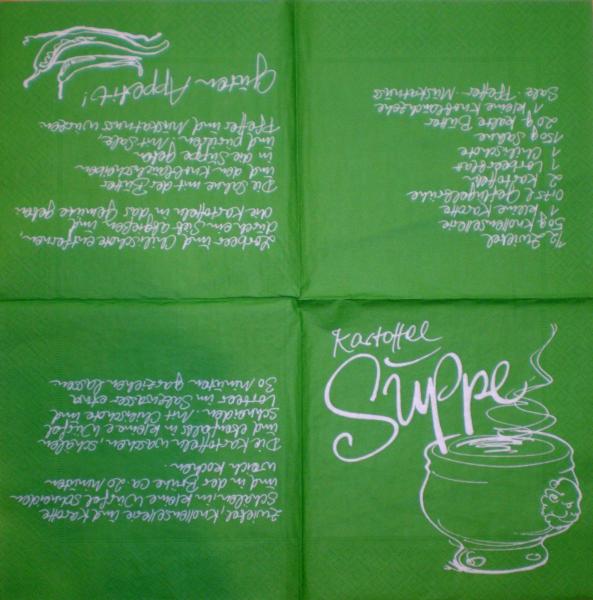 Kartoffel
Suppe
1/2 Zwiebel
50g Knollensellerie
1 kleine Karotte
0,75l Geflügelbrühe
2 Kartoffeln
1 Lorbeerblatt
1 Chilischote
150g Sahne
20g kalte Butter
1 kleine Knoblauchzehe
Salz · Pfeffer · Muskatnuss
Zwiebel, Knollensellerie und Karotte
schälen, in kleine Würfel schneiden
und in der Brühe ca. 20 Minuten
weich kochen.
Die Kartoffeln waschen, schälen
und ebenfalls in kleine Würfel
schneiden. Mit Chilischote und
Lorbeer in Salzwasser etwa
30 Minuten garziehen lassen.
Lorbeer und Chilischote entfernen,
durch ein Sieb abgießen und
die Kartoffeln in das Gemüse geben.
Die Sahne mit der Butter
und den Knoblauchscheiben
in die Suppe geben
und pürieren. Mit Salz,
Pfeffer und Muskatnuss würzen.
Guten Appetit!